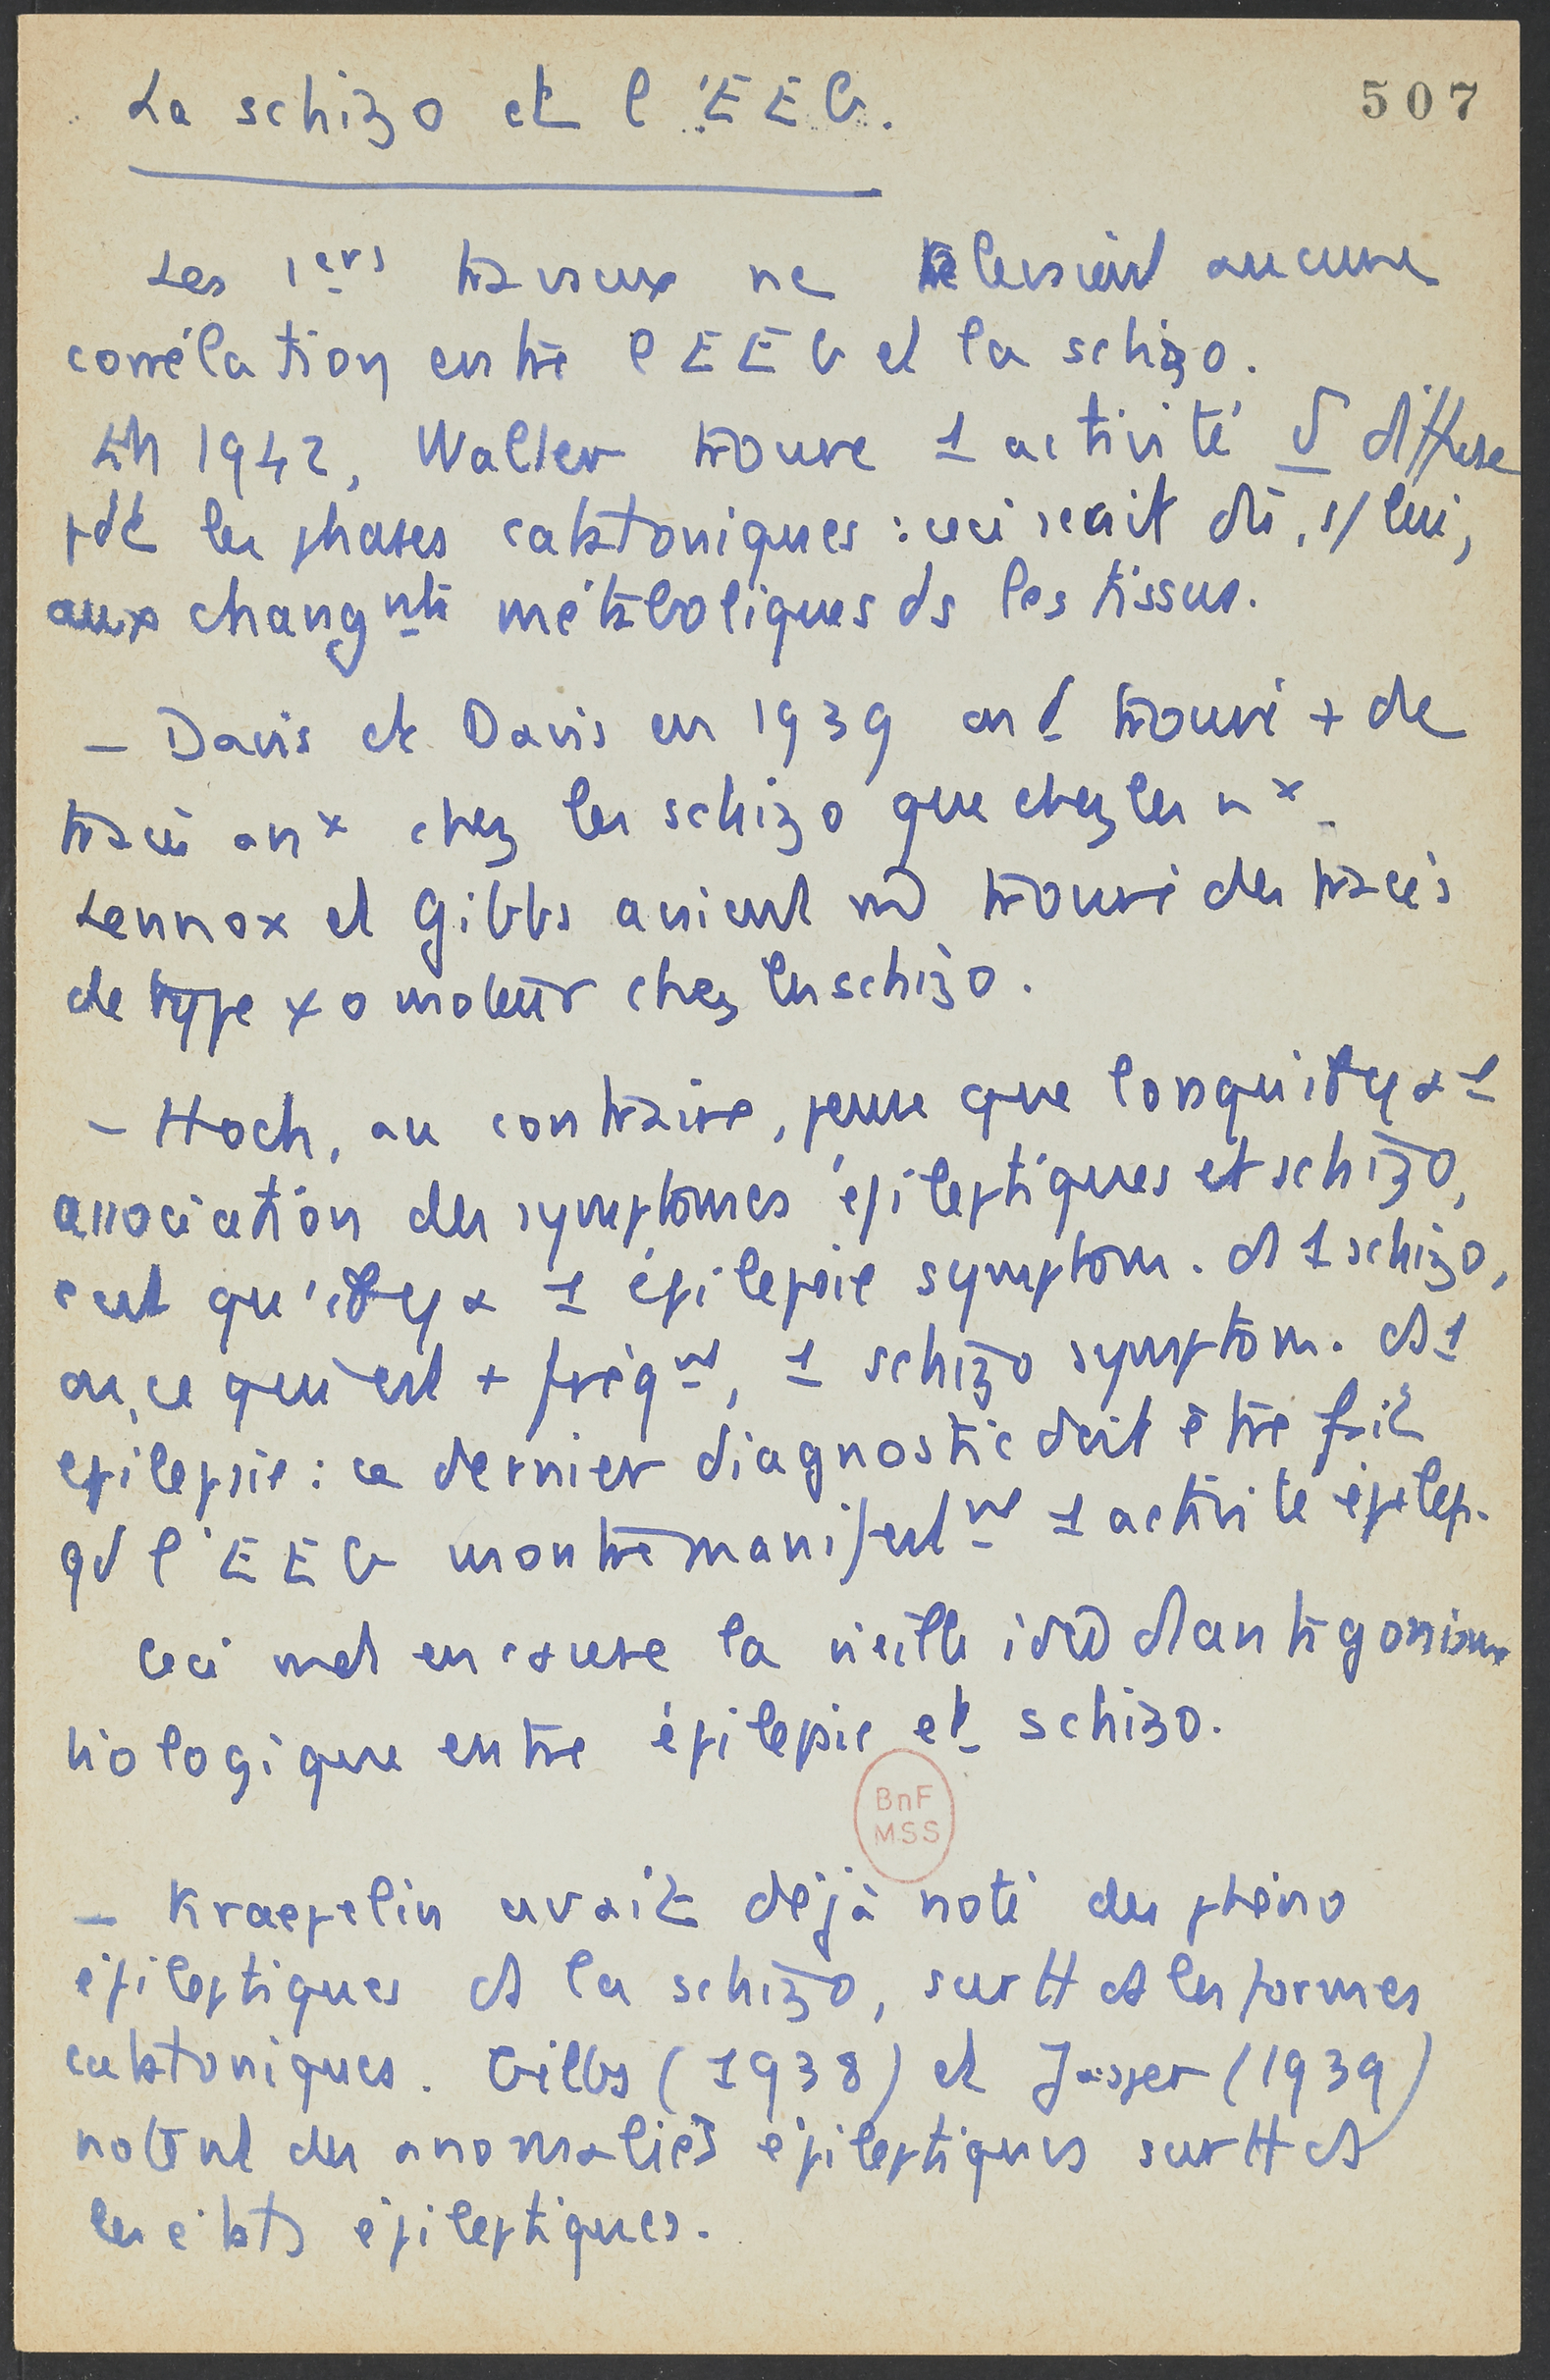 La schizo et l'EEG.
507
Les 1ers travaux ne relevaient aucune
corrélation entre l'EEG et la schizo.
En 1942, Walter trouve 1 activité δ diffuse
pdt les phases catatoniques : ceci serait dû, s/ lui,
aux changnts métaboliques ds les tissus.
– Davis et Davis en 1939 ont trouvé + de
tracés anx chez les schizo que chez les nx.
Lennox et Gibbs avaient trouvé des tracés
de type moteur chez les schizo.
– Hoch, au contraire, pense que lorsqu'il y a 1
association des symptomes épileptiques et schizo,
c'est qu'il y a 1 épilepsie symptom. d 1 schizo,
ou, ce qui est + fréqnt, 1 schizo symptom. d 1
epilepsie : ce dernier diagnostic doit être fait
qd l'EEG montre manifestnt 1 activité épilep.
Ceci met en cause la vieille idée d'antagonisme
biologique entre épilepsie et schizo.
BnF
MSS
– Kraepelin avait déjà noté des phéno
épileptiques ds la schizo, surtt ds les formes
catatoniques. Gibbs (1938) et Jasper (1939)
notent des anomalies épileptiques surtt ds
les états épileptiques.